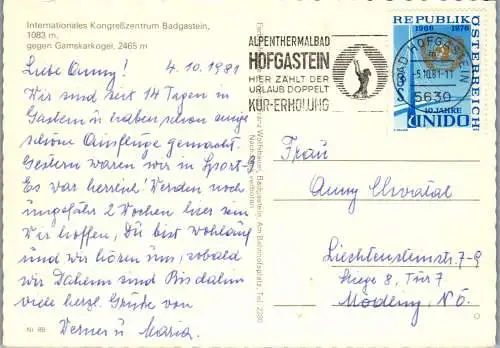 Internationales Kongreßzentrum Badgastein,
1083 m,
gegen Gamskarkogel, 2465 m
Liebe Anny! 4.10.1981
Wir sind seit 14 Tagen in
Gastein u. haben schon einige
schöne Ausflüge gemacht.
Gestern waren wir in Sport-G
Es war herrlich! Werden noch
ungefähr 2 Wochen hier sein
Wir hoffen, Du bist wohlauf
und wir hören uns, sobald
wir Daheim sind. Bis dahin
viele herzl. Grüße von
Werner u. Maria.
Nr. 89
Franz Wolfsbauer, Badgastein, Am Bahnhofsplatz, Tel. 2280
Nachdruck verboten
ALPENTHERMALBAD
HOFGASTEIN
HIER ZÄHLT DER
URLAUB DOPPELT
KUR-ERHOLUNG
BAD HOFGASTEIN
-5.10.81-11
5630
REPUBLIK ÖSTERREICH
1966 1976
S 3
10 JAHRE
UNIDO
Frau
Anny Chvatal
Liechtensteinstr. 7-9
Stiege 8, Tür 7
Mödling, N.Ö.